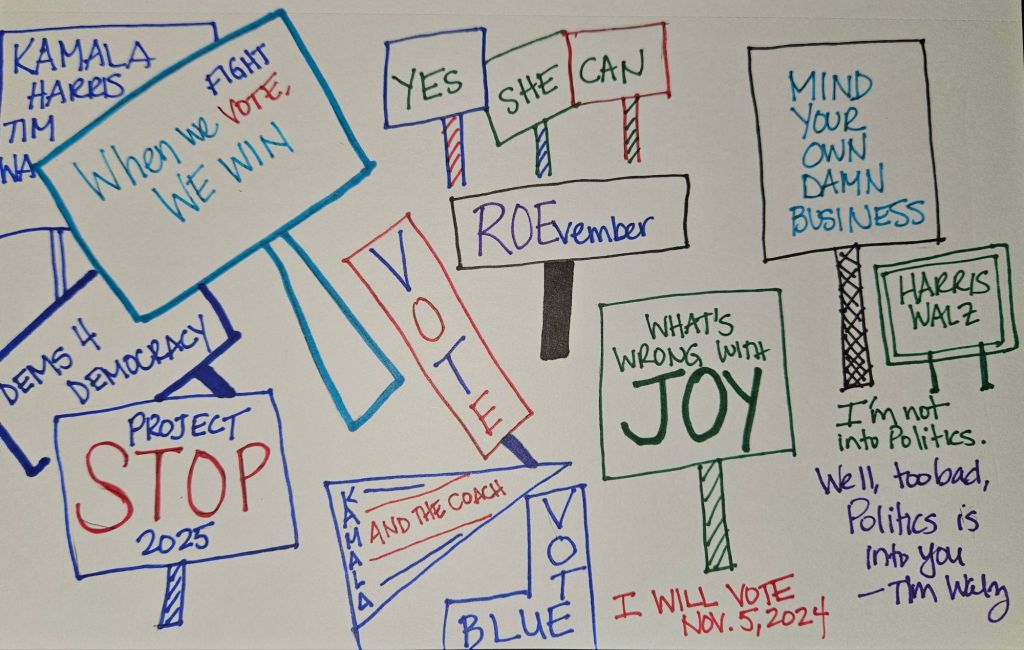 KAMALA
HARRIS
TIM
WA
When we FIGHT
VOTE,
WE WIN
YES
SHE
CAN
MIND
YOUR
OWN
DAMN
BUSINESS
ROEvember
VOTE
HARRIS
WALZ
DEMS 4
DEMOCRACY
WHAT'S
WRONG WITH
JOY
PROJECT
STOP
2025
KAMALA
AND THE COACH
VOTE
BLUE
I'm not
into Politics.
Well, too bad,
Politics is
into you
—Tim Walz
I WILL VOTE
NOV. 5, 2024